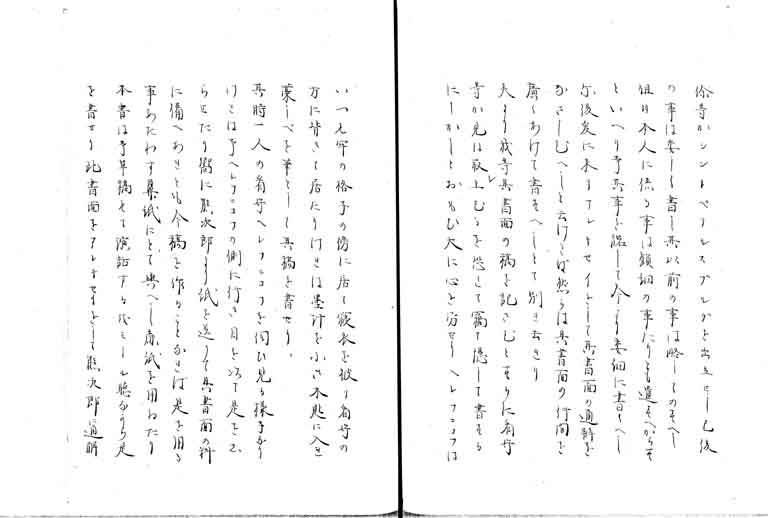 徐寺かシントペテルスブルグを出立せし已後
の事は委しく書し其以前の事は略してのそへし
但日本人に係る事は瑣細の事たりとも遺すへからす
といへり予其事を諾して今より委細に書すへし
尓後友に木りアレキセイをして其書面の通辞を
なさしむへしと云けれは然らは其書面の行間を
廣くあけて書すへしとて別れ去れり
夫より我等其書面の稿を記さむとするに番卒
等か見は取上むるを恐れて竊に隠して書する
にしかしとおもひ大に心を労せり ヘレフニコフは
いつも牢の格子の傍に居て寝衣を被り番卒の
方に背きて居たり けれは墨汁を小さき木匙に入れ
藁しべを筆として其稿を書せり
其時一人の番卒ヘレフニコフを伺ひ見る様子なり
けれは予ヘレフニコフの側に行き目を以て是を
らせたり 嚮に熊次郎より紙を送りて其書面の料
に備へおきとも今稿を作ることなれは是を用る
事あたわす 鼻紙にとて與へし麁紙を用ゐたり
本書は予草稿せて演話する代ミール聴ながら是
を書せり 此書面をアレキセイをして熊次郎に通辞